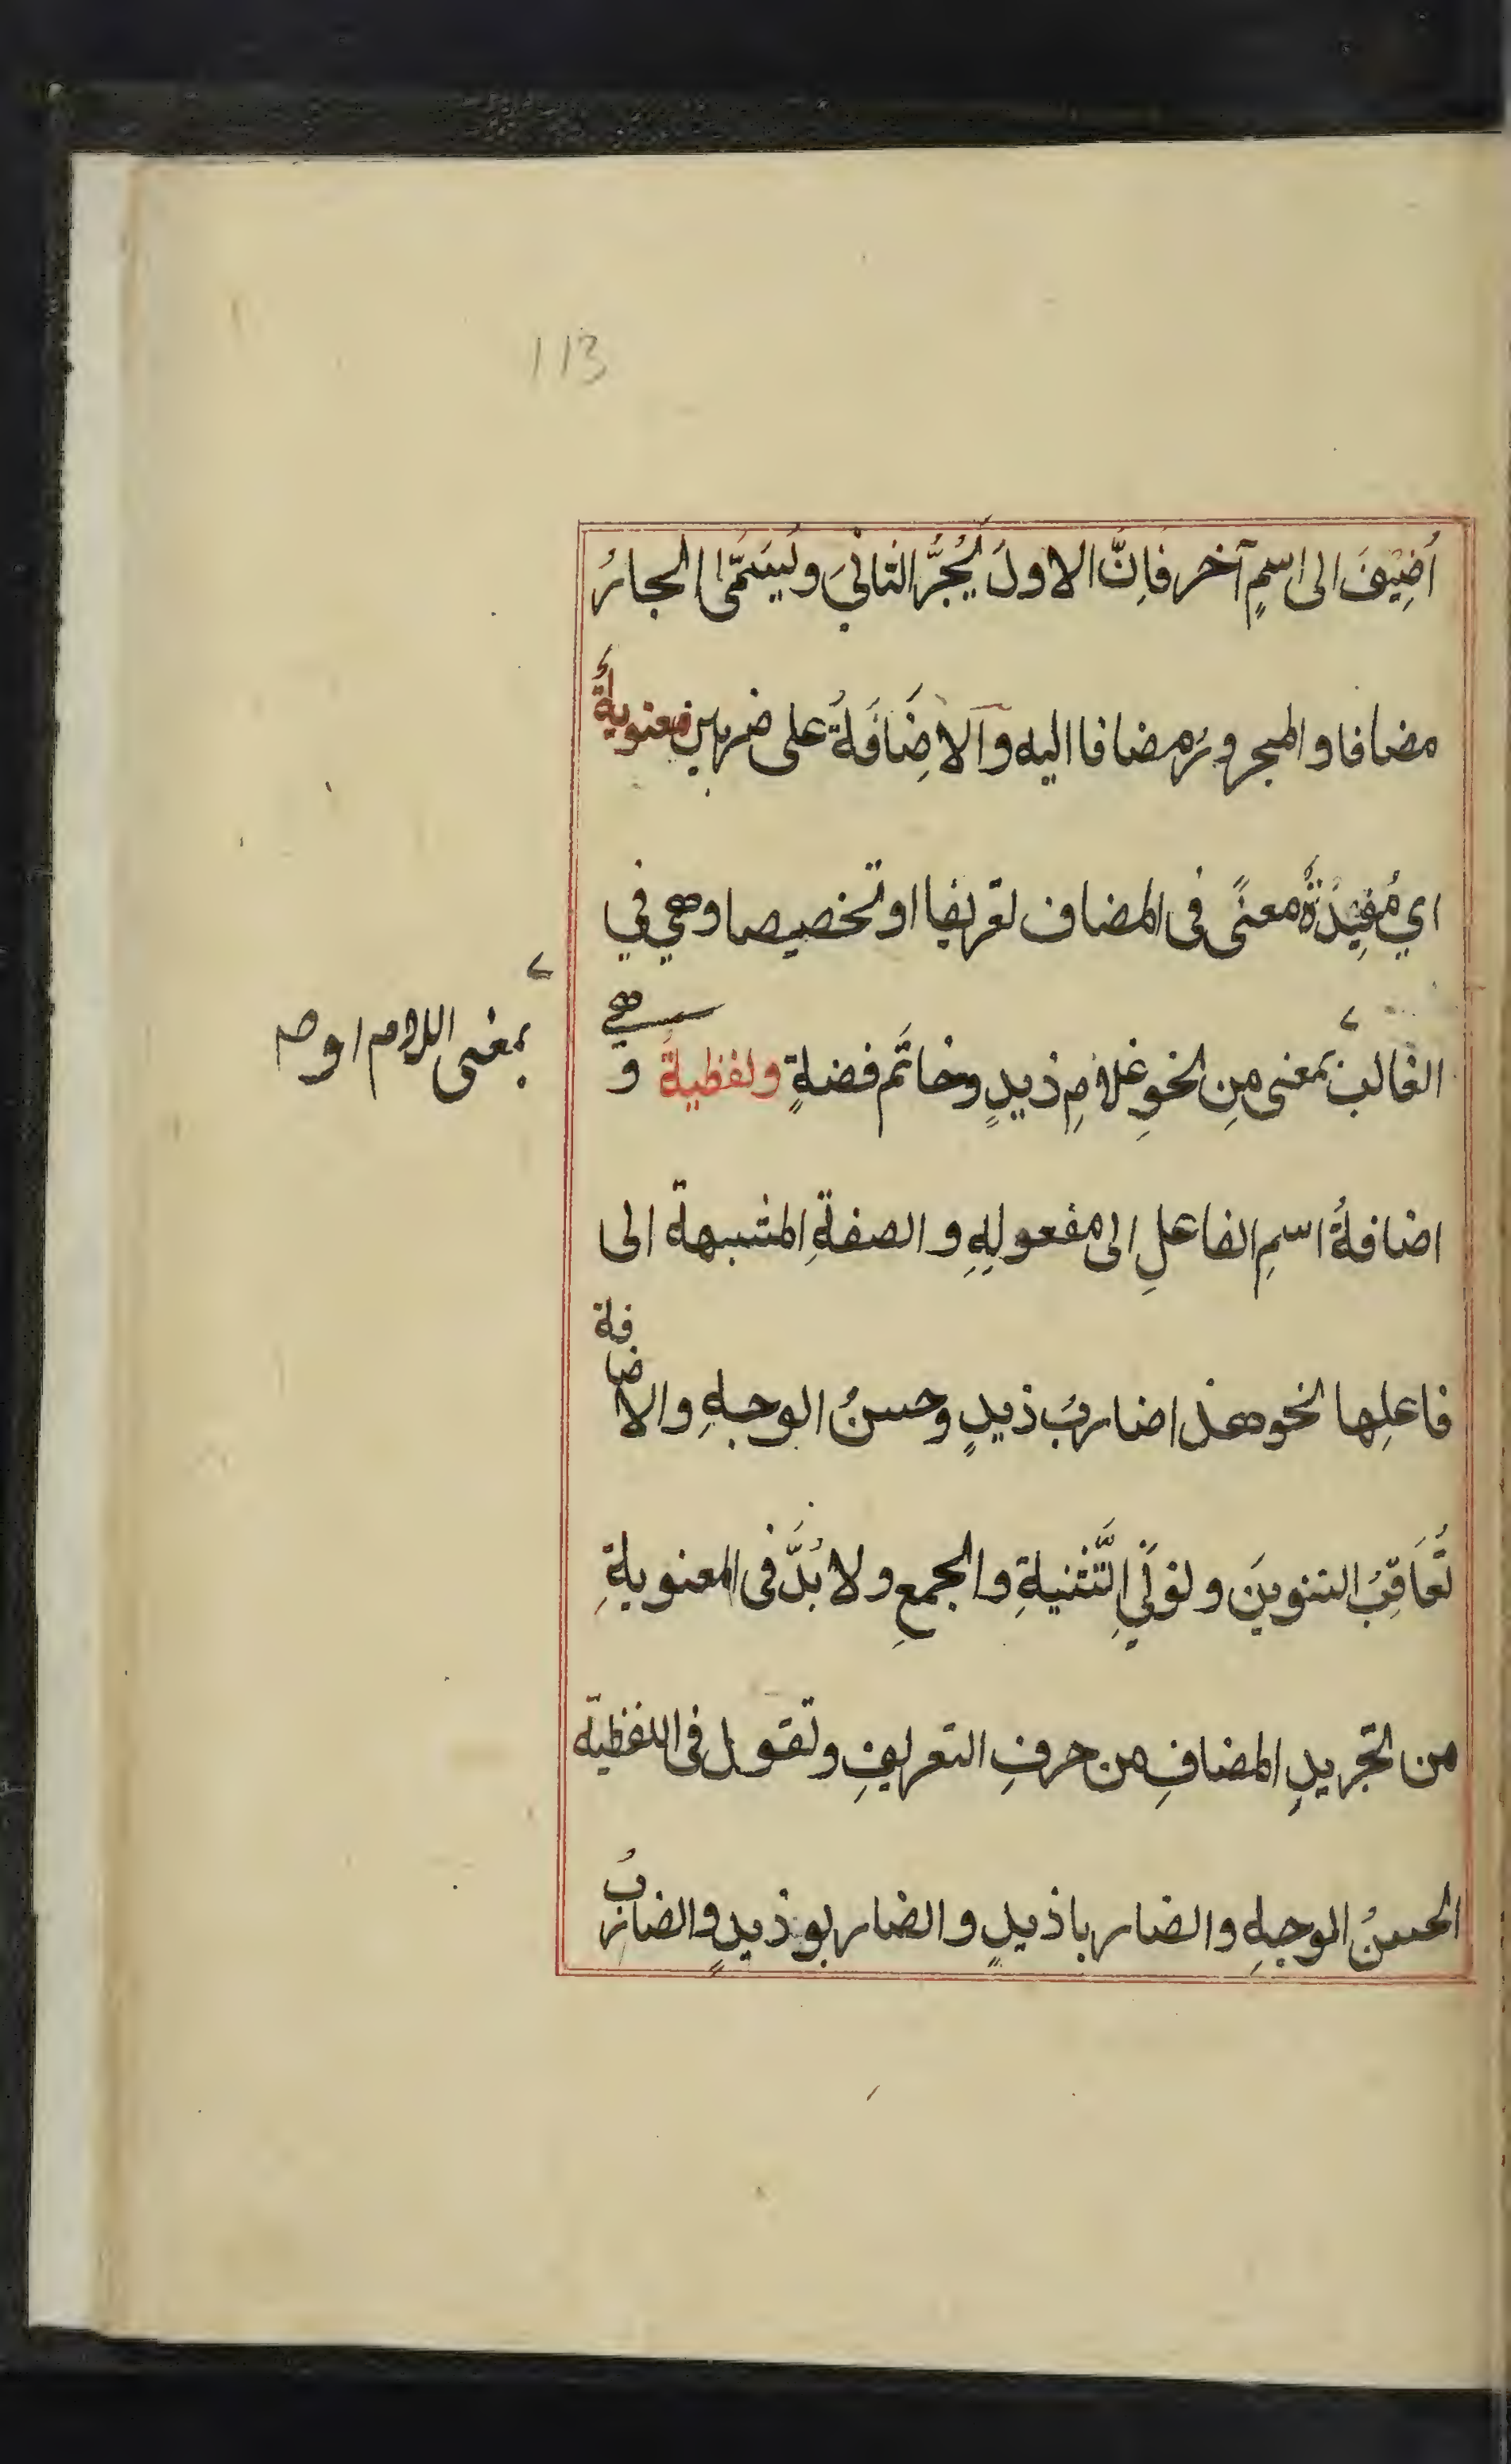 113
اُضِيْفَ الى اسمٍ آخر فَاِنَّ الاولَ يُجُرُّ الثانيَ ويُسَمَّى الجارُ
مضافا والمجرورُ مضافا اليه وَالاِضَافَةُ على ضربين معنويةٌ
اي مُفِيْدَةٌ معنًى فى المضاف تعريفا او تخصيصا وهي في
الغالب بمعنى مِن نحوِ غلامِ زيدٍ وخاتَم فضةٍ ولفظيةٌ و هي
بمعنى اللام او
اضافةُ اسمِ الفاعلِ الى مفعولِهِ والصفةِ المشبهة الى
فاعلِها نحو هذا ضاربُ زيدٍ وحسنُ الوجهِ والاضافة
تُعَاقِبُ التنوينَ ونونَيِ التَّثنيةِ والجمعِ ولا بُدَّ فى المعنويةِ
من تجريدِ المضافِ من حرفِ التعريفِ وتقول فى اللفظيّة
الحسنُ الوجهِ والضاربا زيدٍ والضاربو زيدٍ والضاربُ